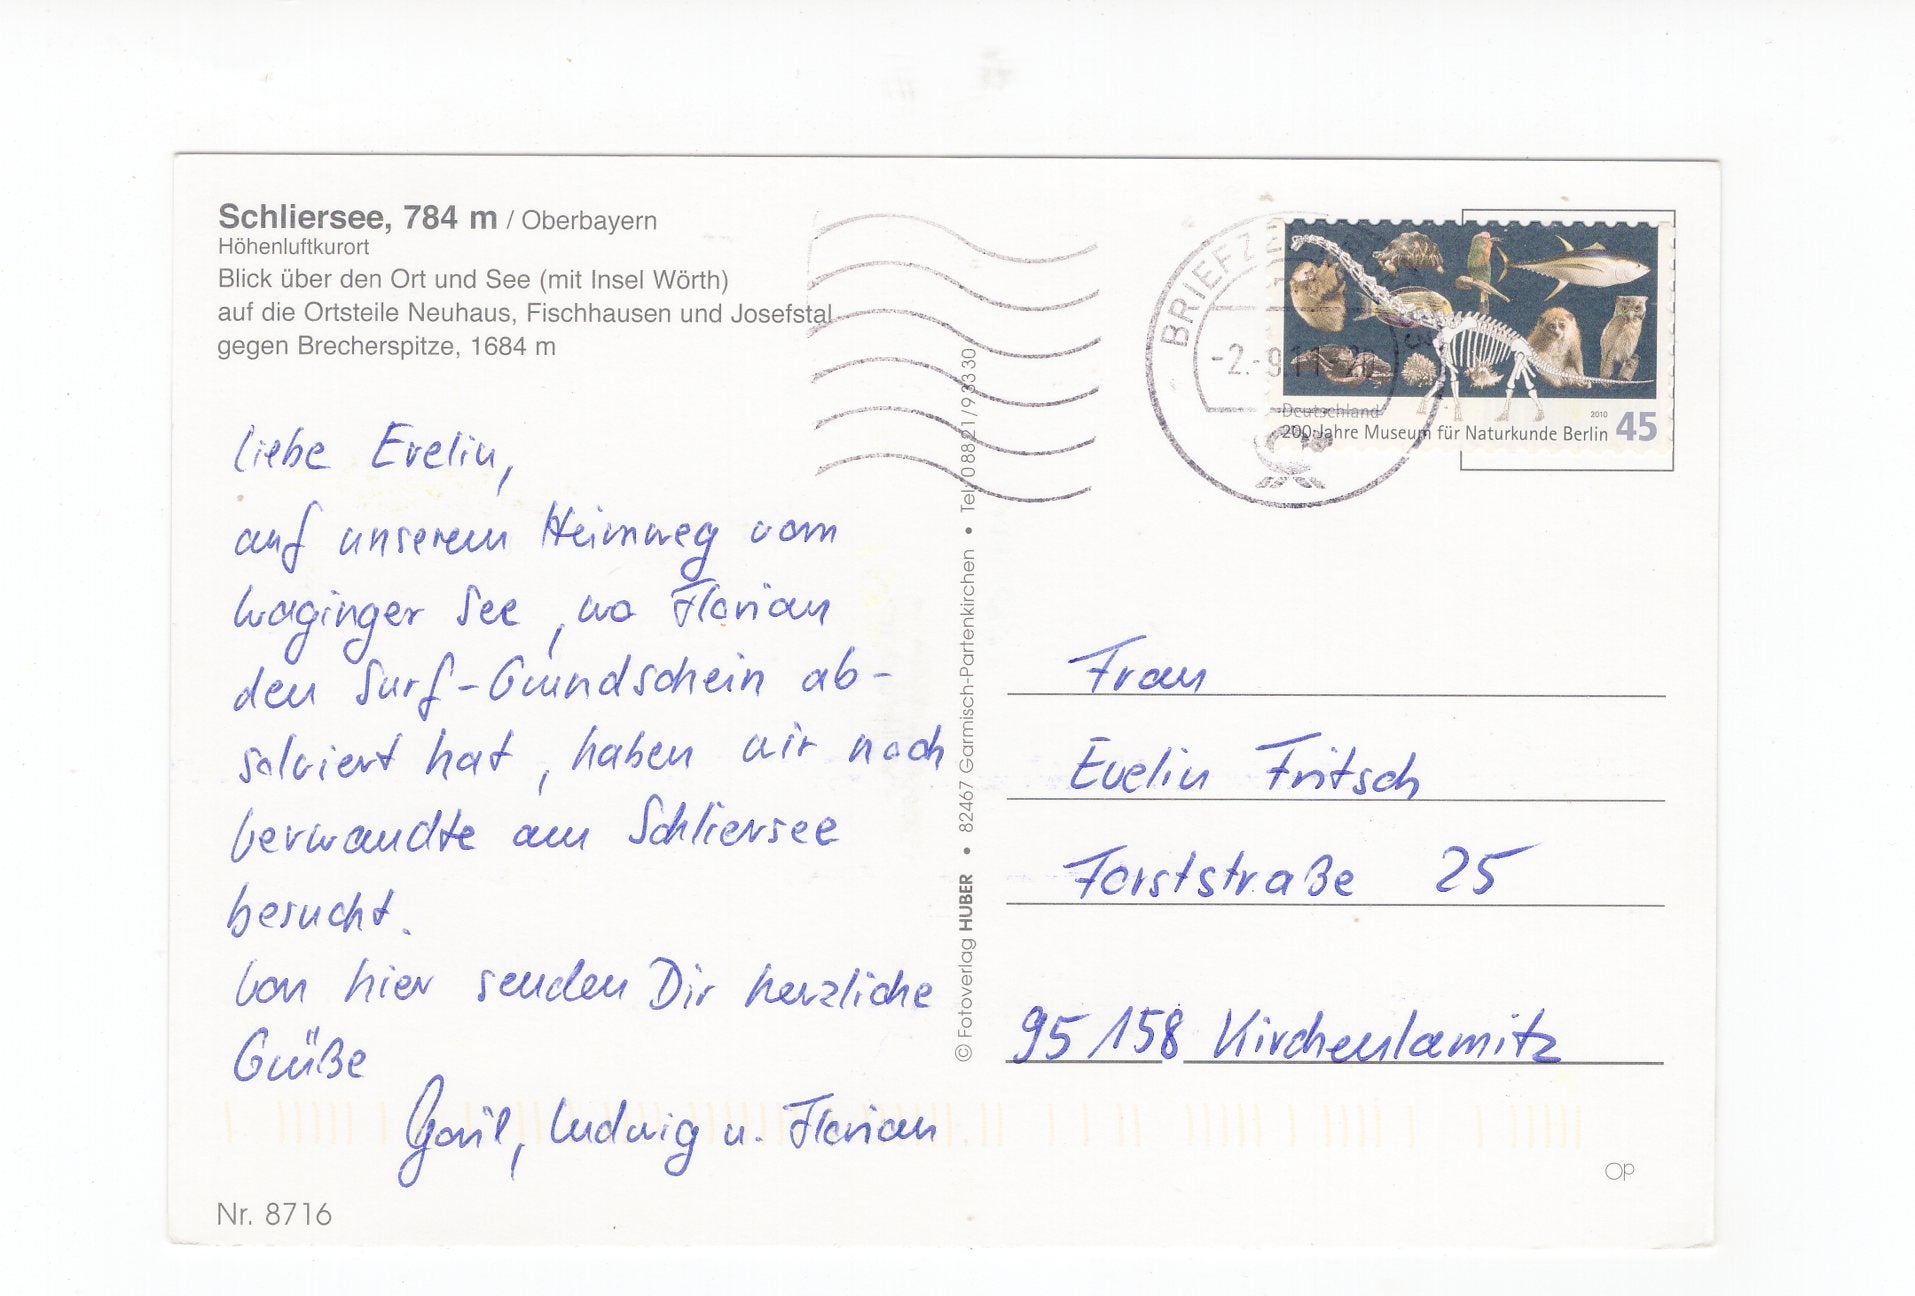 Schliersee, 784 m / Oberbayern
Höhenluftkurort
Blick über den Ort und See (mit Insel Wörth)
auf die Ortsteile Neuhaus, Fischhausen und Josefstal
gegen Brecherspitze, 1684 m
Liebe Evelin,
auf unserem Heimweg vom
Waginger See, wo Florian
den Surf-Grundschein ab-
solviert hat, haben wir noch
Verwandte am Schliersee
besucht.
Von hier senden Dir herzliche
Grüße
Ludwig u. Florian
Nr. 8716
© Fotoverlag HUBER • 82467 Garmisch-Partenkirchen • Tel. 08821/9 33 30
BRIEFZ
-2.-9.11-20
Deutschland
2010
200 Jahre Museum für Naturkunde Berlin 45
Frau
Evelin Fritsch
Forststraße 25
95158 Kirchenlamitz
OP